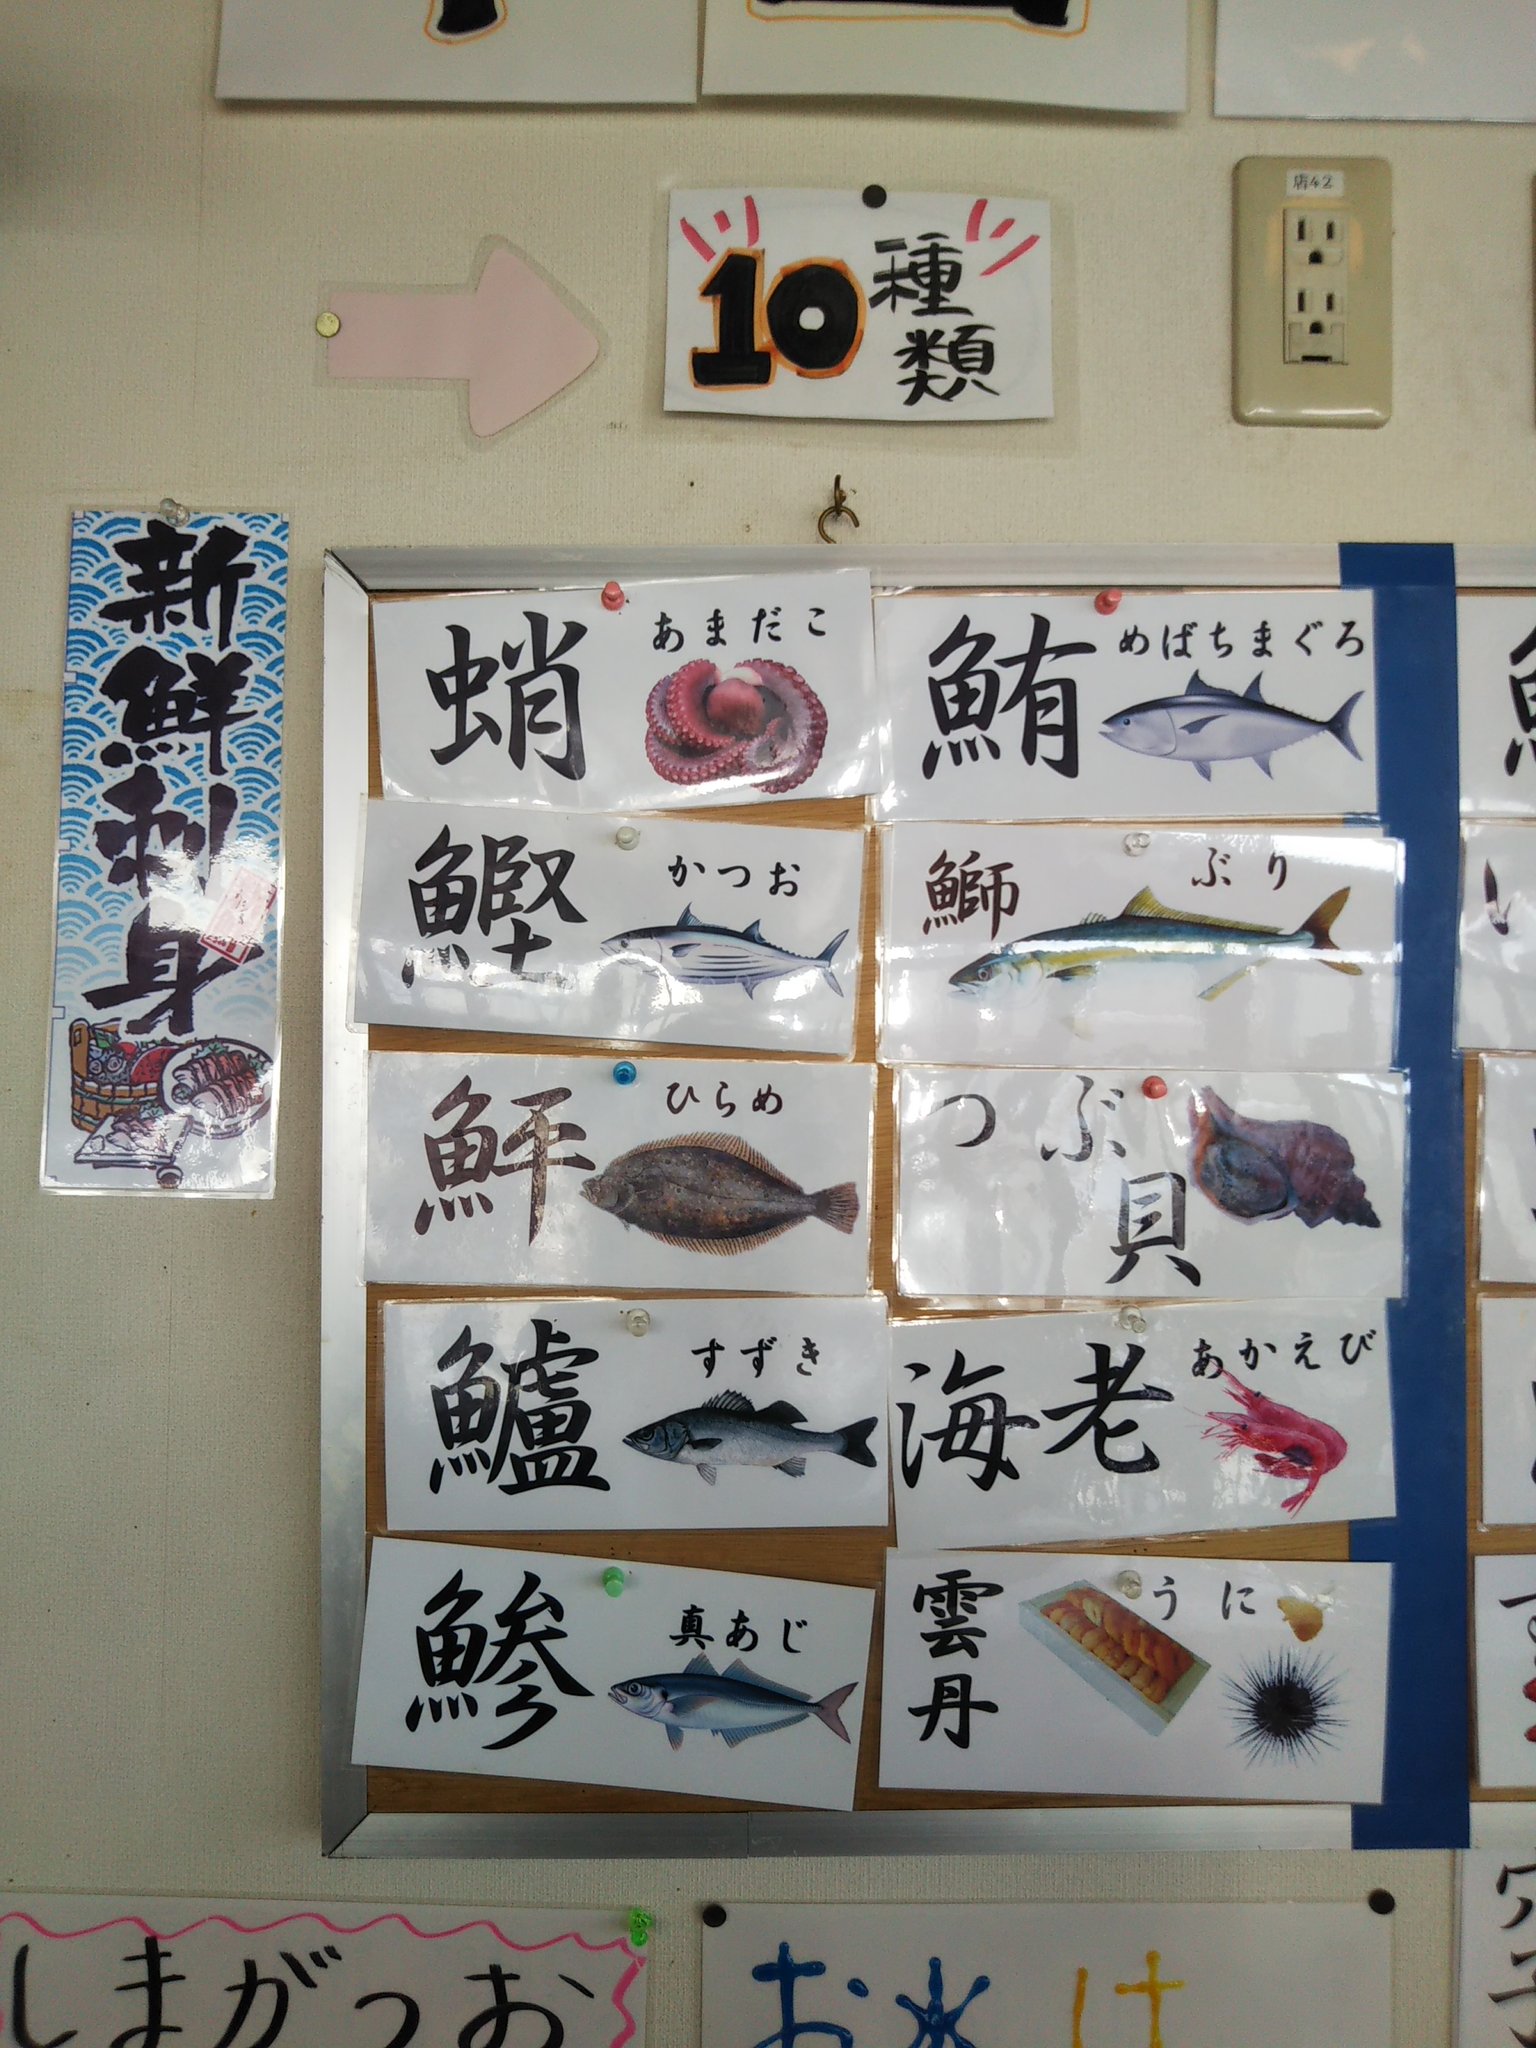 10種類
店42
新鮮刺身
蛸 あまだこ
鮪 めばちまぐろ
鰹 かつお
鰤 ぶり
鮃 ひらめ
つぶ貝
鱸 すずき
海老 あかえび
鯵 真あじ
雲丹 うに
しまがつお
お水は